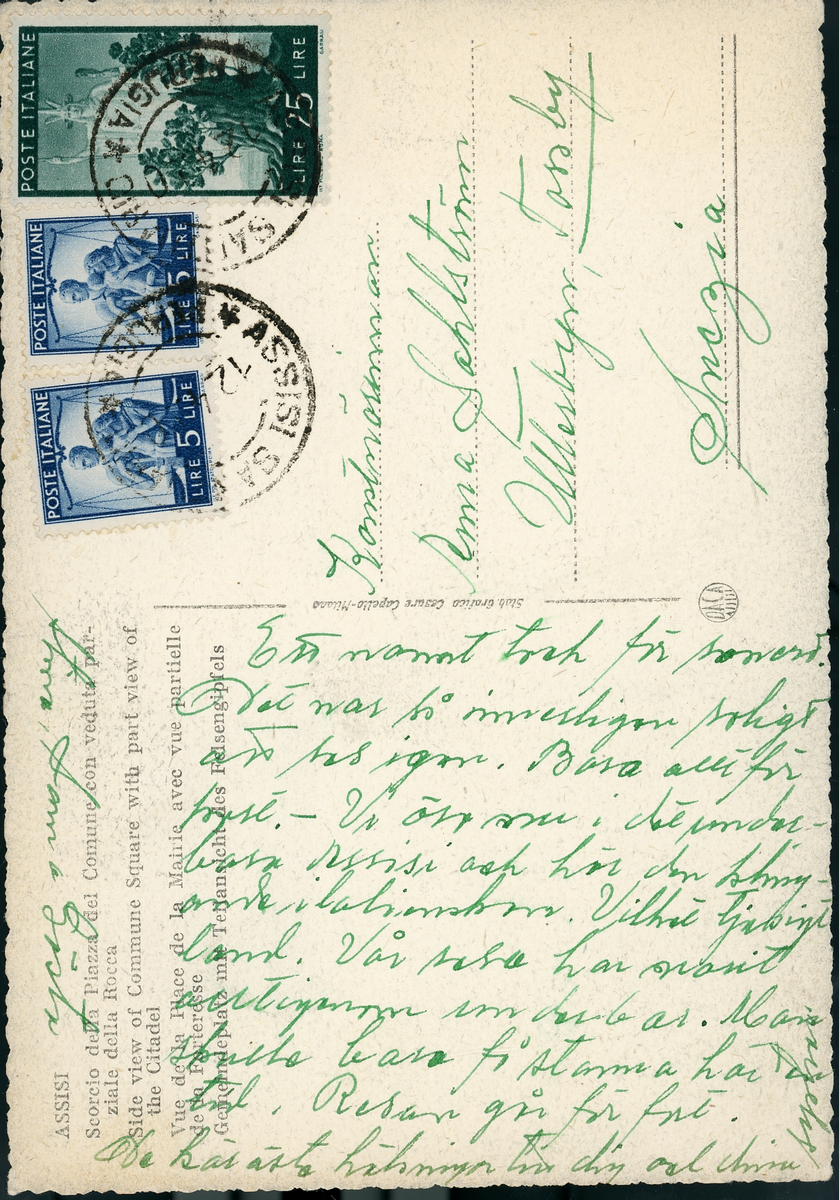 POSTE ITALIANE
LIRE 25 LIRE
POSTE ITALIANE
LIRE 5 LIRE
POSTE ITALIANE
LIRE 5 LIRE
ASSISI
12
Konstnärinnan
Anna Sahlström
Utterbyn, Torsby
Svezia
Stab. Grafico Cesare Capello-Milano
DACA
ASSISI
Scorcio della Piazza del Comune con veduta par-
ziale della Rocca
Side view of Commune Square with part view of
the Citadel
Vue de la Place de la Mairie avec vue partielle
de la Forteresse
Gemeindeplatz mit Teilansicht des Felsengipfels
Ett varmt tack för senast.
Det var så roligt
att ses igen. Bara allt för
kort. – Vi äro nu i det under-
bara Assisi och hör den
italienskan. Vilket tjusigt
land. Vår resa har varit
alltigenom underbar. Man
skulle bara få stanna här en
tid. Resan går för fort.
De käraste hälsningar till dig och dina